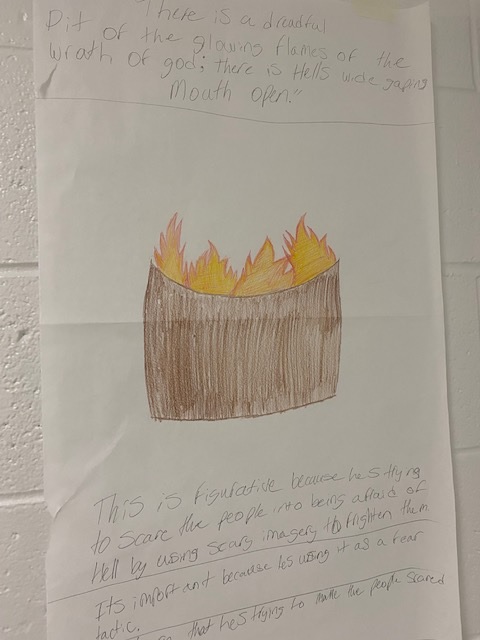 "There is a dreadful
Pit of the glowing flames of the
wrath of god; there is Hells wide gaping
Mouth open."
This is figurative because hes trying
to scare the people into being afraid of
Hell by using scary imagery to frighten them
Its important because hes using it as a fear
tactic.
that hes trying to make the people scared